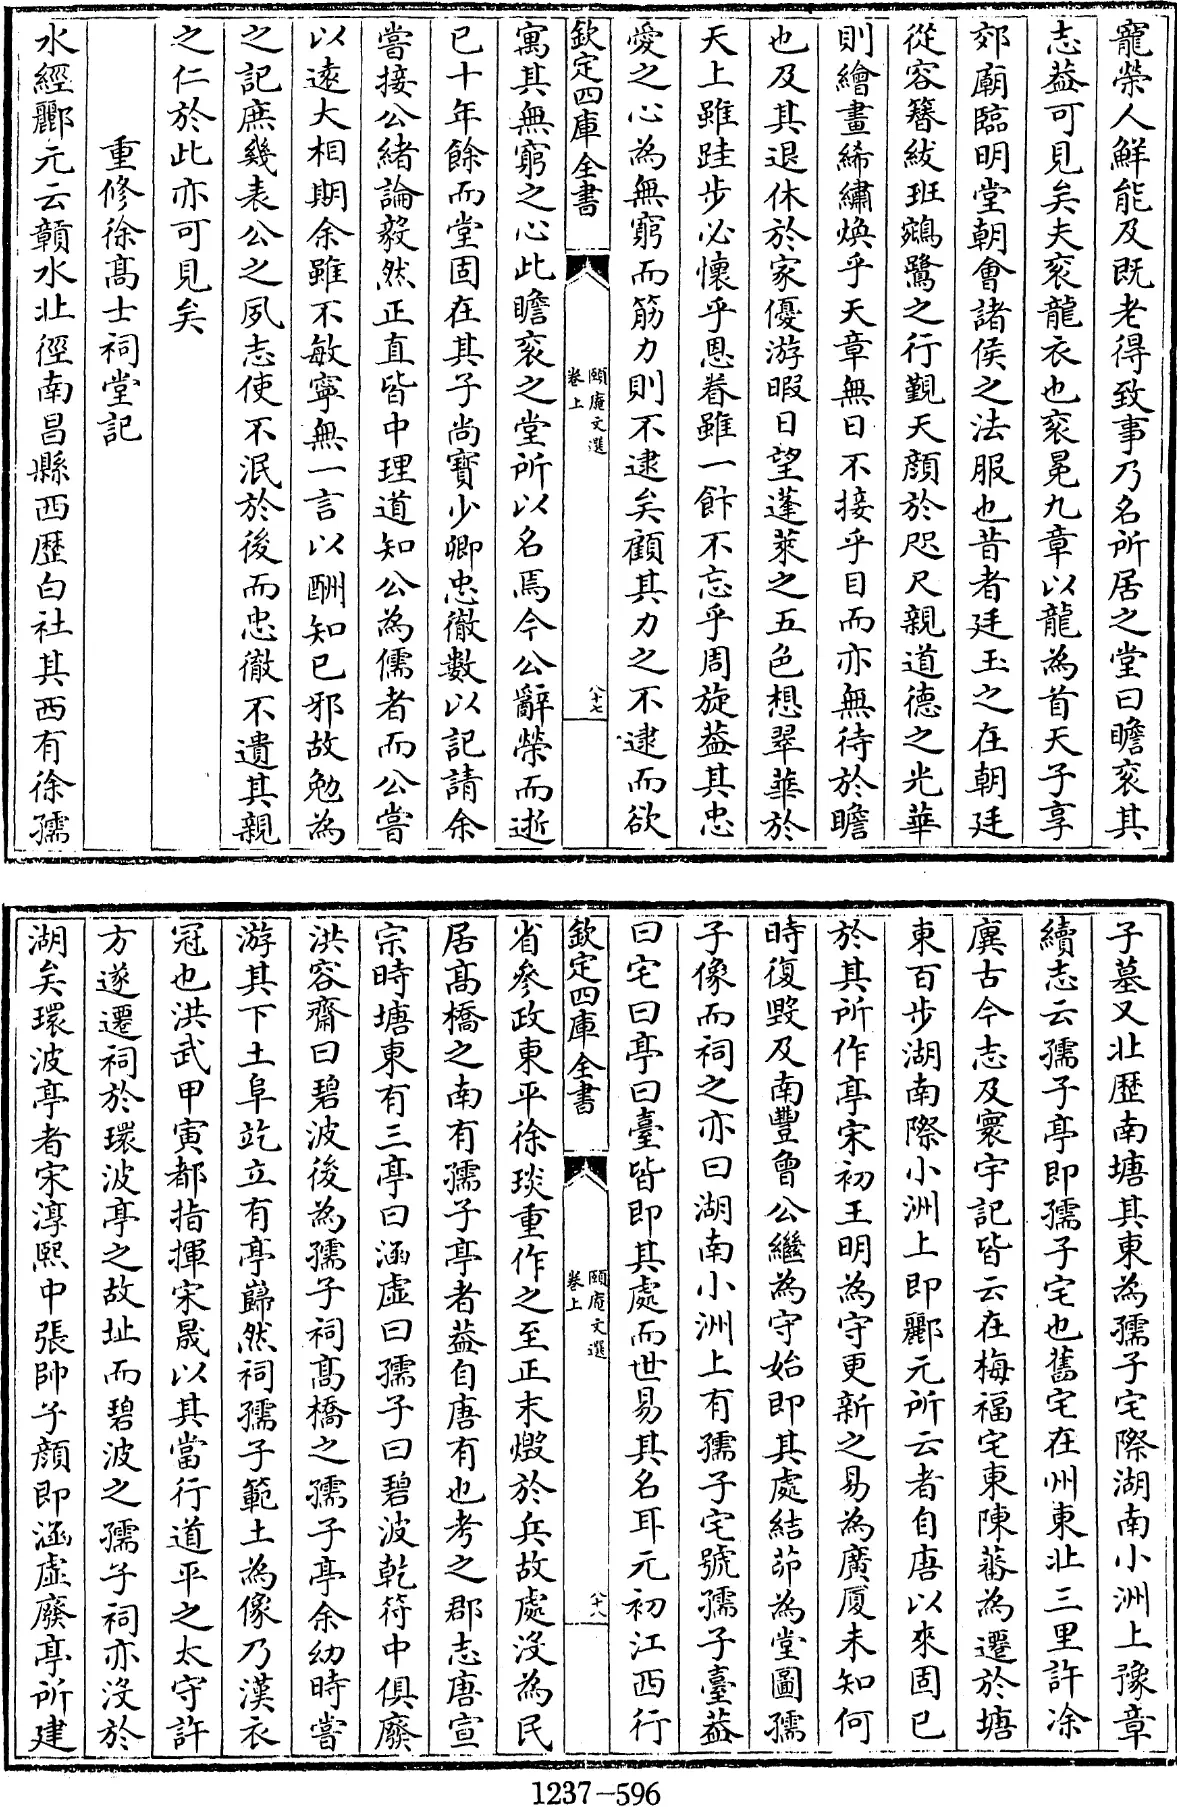 寵榮人鮮能及既老得致事乃名所居之堂曰瞻衮其
志葢可見矣夫衮龍衣也衮冕九章以龍為首天子享
郊廟臨明堂朝會諸侯之法服也昔者廷玉之在朝廷
從容簪紱班鵷鷺之行覲天顔於咫尺親道德之光華
則繪畫絺繡煥乎天章無日不接乎目而亦無待於瞻
也及其退休於家優游暇日望蓬萊之五色想翠華於
天上雖跬步必懷乎恩眷雖一飰不忘乎周旋葢其忠
愛之心為無窮而筋力則不逮矣顧其力之不逮而欲
欽定四庫全書
頤庵文選
卷上
八十七
寓其無窮之心此瞻衮之堂所以名焉今公辭榮而逝
已十年餘而堂固在其子尚寳少卿忠徹數以記請余
嘗接公緒論毅然正直皆中理道知公為儒者而公嘗
以逺大相期余雖不敏寧無一言以酬知已邪故勉為
之記庶幾表公之夙志使不泯於後而忠徹不遺其親
之仁於此亦可見矣
重修徐髙士祠堂記
水經酈元云贑水北徑南昌縣西歴白社其西有徐孺
子墓又北歴南塘其東為孺子宅際湖南小洲上豫章
續志云孺子亭即孺子宅也舊宅在州東北三里許涂
廙古今志及寰宇記皆云在梅福宅東陳蕃為遷於塘
東百步湖南際小洲上即酈元所云者自唐以來固已
於其所作亭宋初王明為守更新之易為廣厦未知何
時復毁及南豐曾公繼為守始即其處結茆為堂圖孺
子像而祠之亦曰湖南小洲上有孺子宅號孺子臺葢
曰宅曰亭曰臺皆即其處而世易其名耳元初江西行
欽定四庫全書
頤庵文選
卷上
八十八
省參政東平徐琰重作之至正末燬於兵故處沒為民
居髙橋之南有孺子亭者葢自唐有也考之郡志唐宣
宗時塘東有三亭曰涵虛曰孺子曰碧波乾符中俱廢
洪容齋曰碧波後為孺子祠髙橋之孺子亭余幼時嘗
游其下土阜屹立有亭巋然祠孺子範土為像乃漢衣
冠也洪武甲寅都指揮宋晟以其當行道平之太守許
方遂遷祠於環波亭之故址而碧波之孺子祠亦沒於
湖矣環波亭者宋淳熙中張帥子顔即涵虛廢亭所建
1237—596